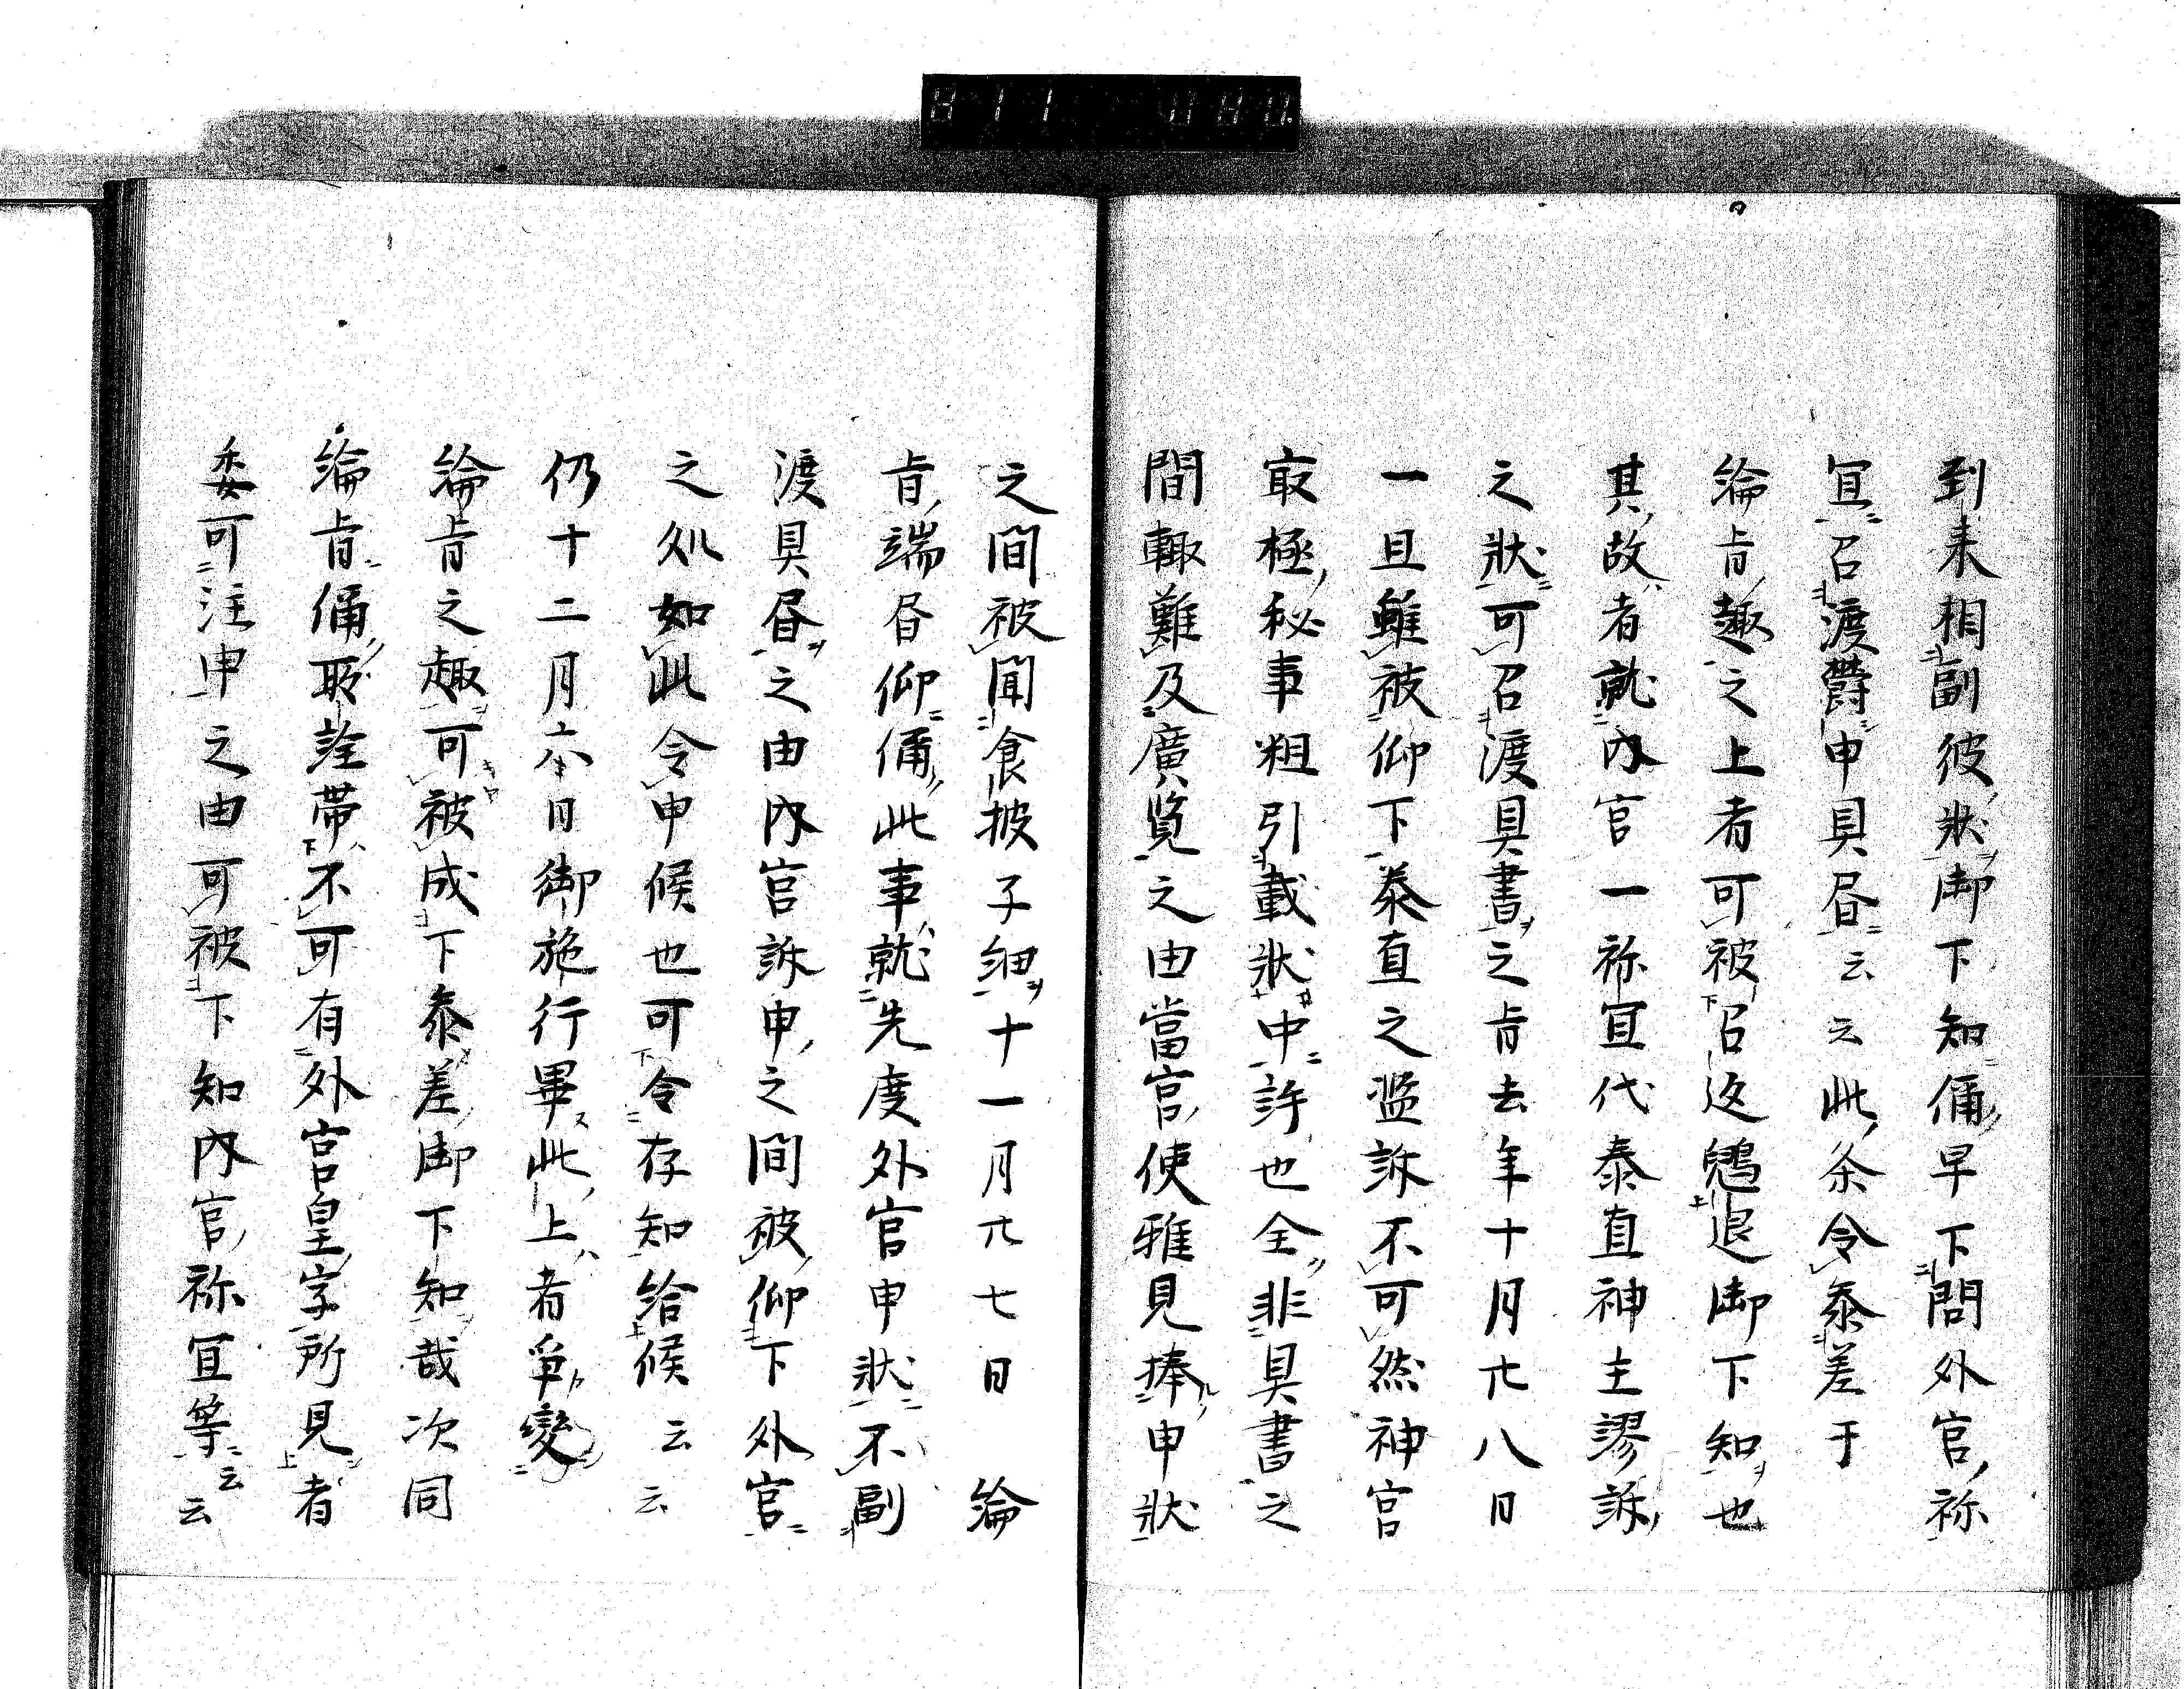 到来相副彼状御下知偁早下問外宮祢
冝召渡欝申具昏云云此条令泰差于
綸旨趣之上者可被召返䰟退御下知也
其故者就内宮一祢冝代泰直神主謬訴
之状可召渡具書之旨去年十月廿八日
一旦雖被仰下泰直之濫訴不可然神宮
冣極秘事粗引載状中許也全非具書之
間輙難及廣覧之由當宮使雅見捧申状
之間被聞食披子細十一月廿七日 綸
旨端昏仰偁此事就先度外宮申状不副
渡具昏之由内宮訴申之間被仰下外宮
之処如此令申候也可令存知給候云云
仍十二月六日御施行畢此上者争變
綸旨之趣可被成下泰差御下知哉次同
綸旨偁所詮帯不可有外宮皇字所見者
委可注申之由可被下知内宮祢冝等云云